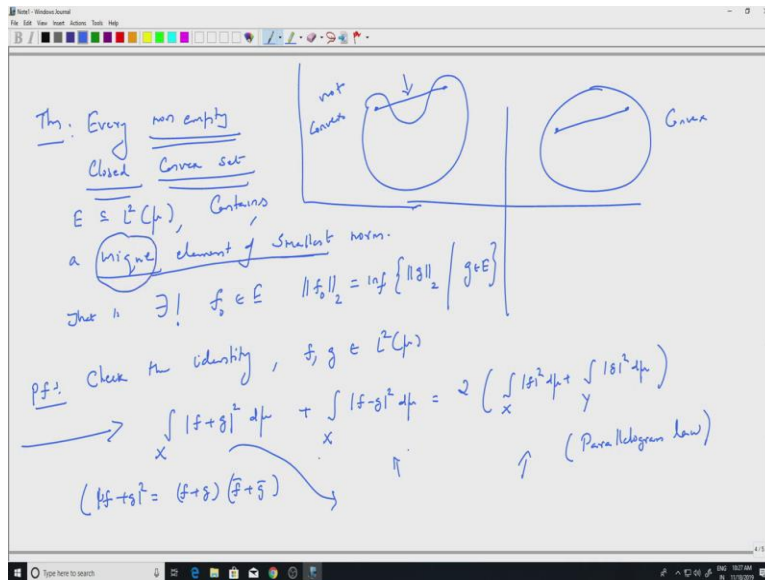 Note1 - Windows Journal
File Edit View Insert Actions Tools Help
not
Convex
Convex
Thm: Every non empty
Closed Convex set
E ⊆ L²(μ), Contains
a unique element of Smallest norm.
That is ∃! f₀ ∈ E ||f₀||₂ = inf { ||g||₂ | g∈E }
Pf: Check the identity, f, g ∈ L²(μ)
∫_X |f+g|² dμ + ∫_X |f-g|² dμ = 2 ( ∫_X |f|² dμ + ∫_Y |g|² dμ )
(Parallelogram law)
( |f+g|² = (f+g) (f̄+ḡ)
4/5
Type here to search
ENG 10:27 AM
IN 11/18/2019